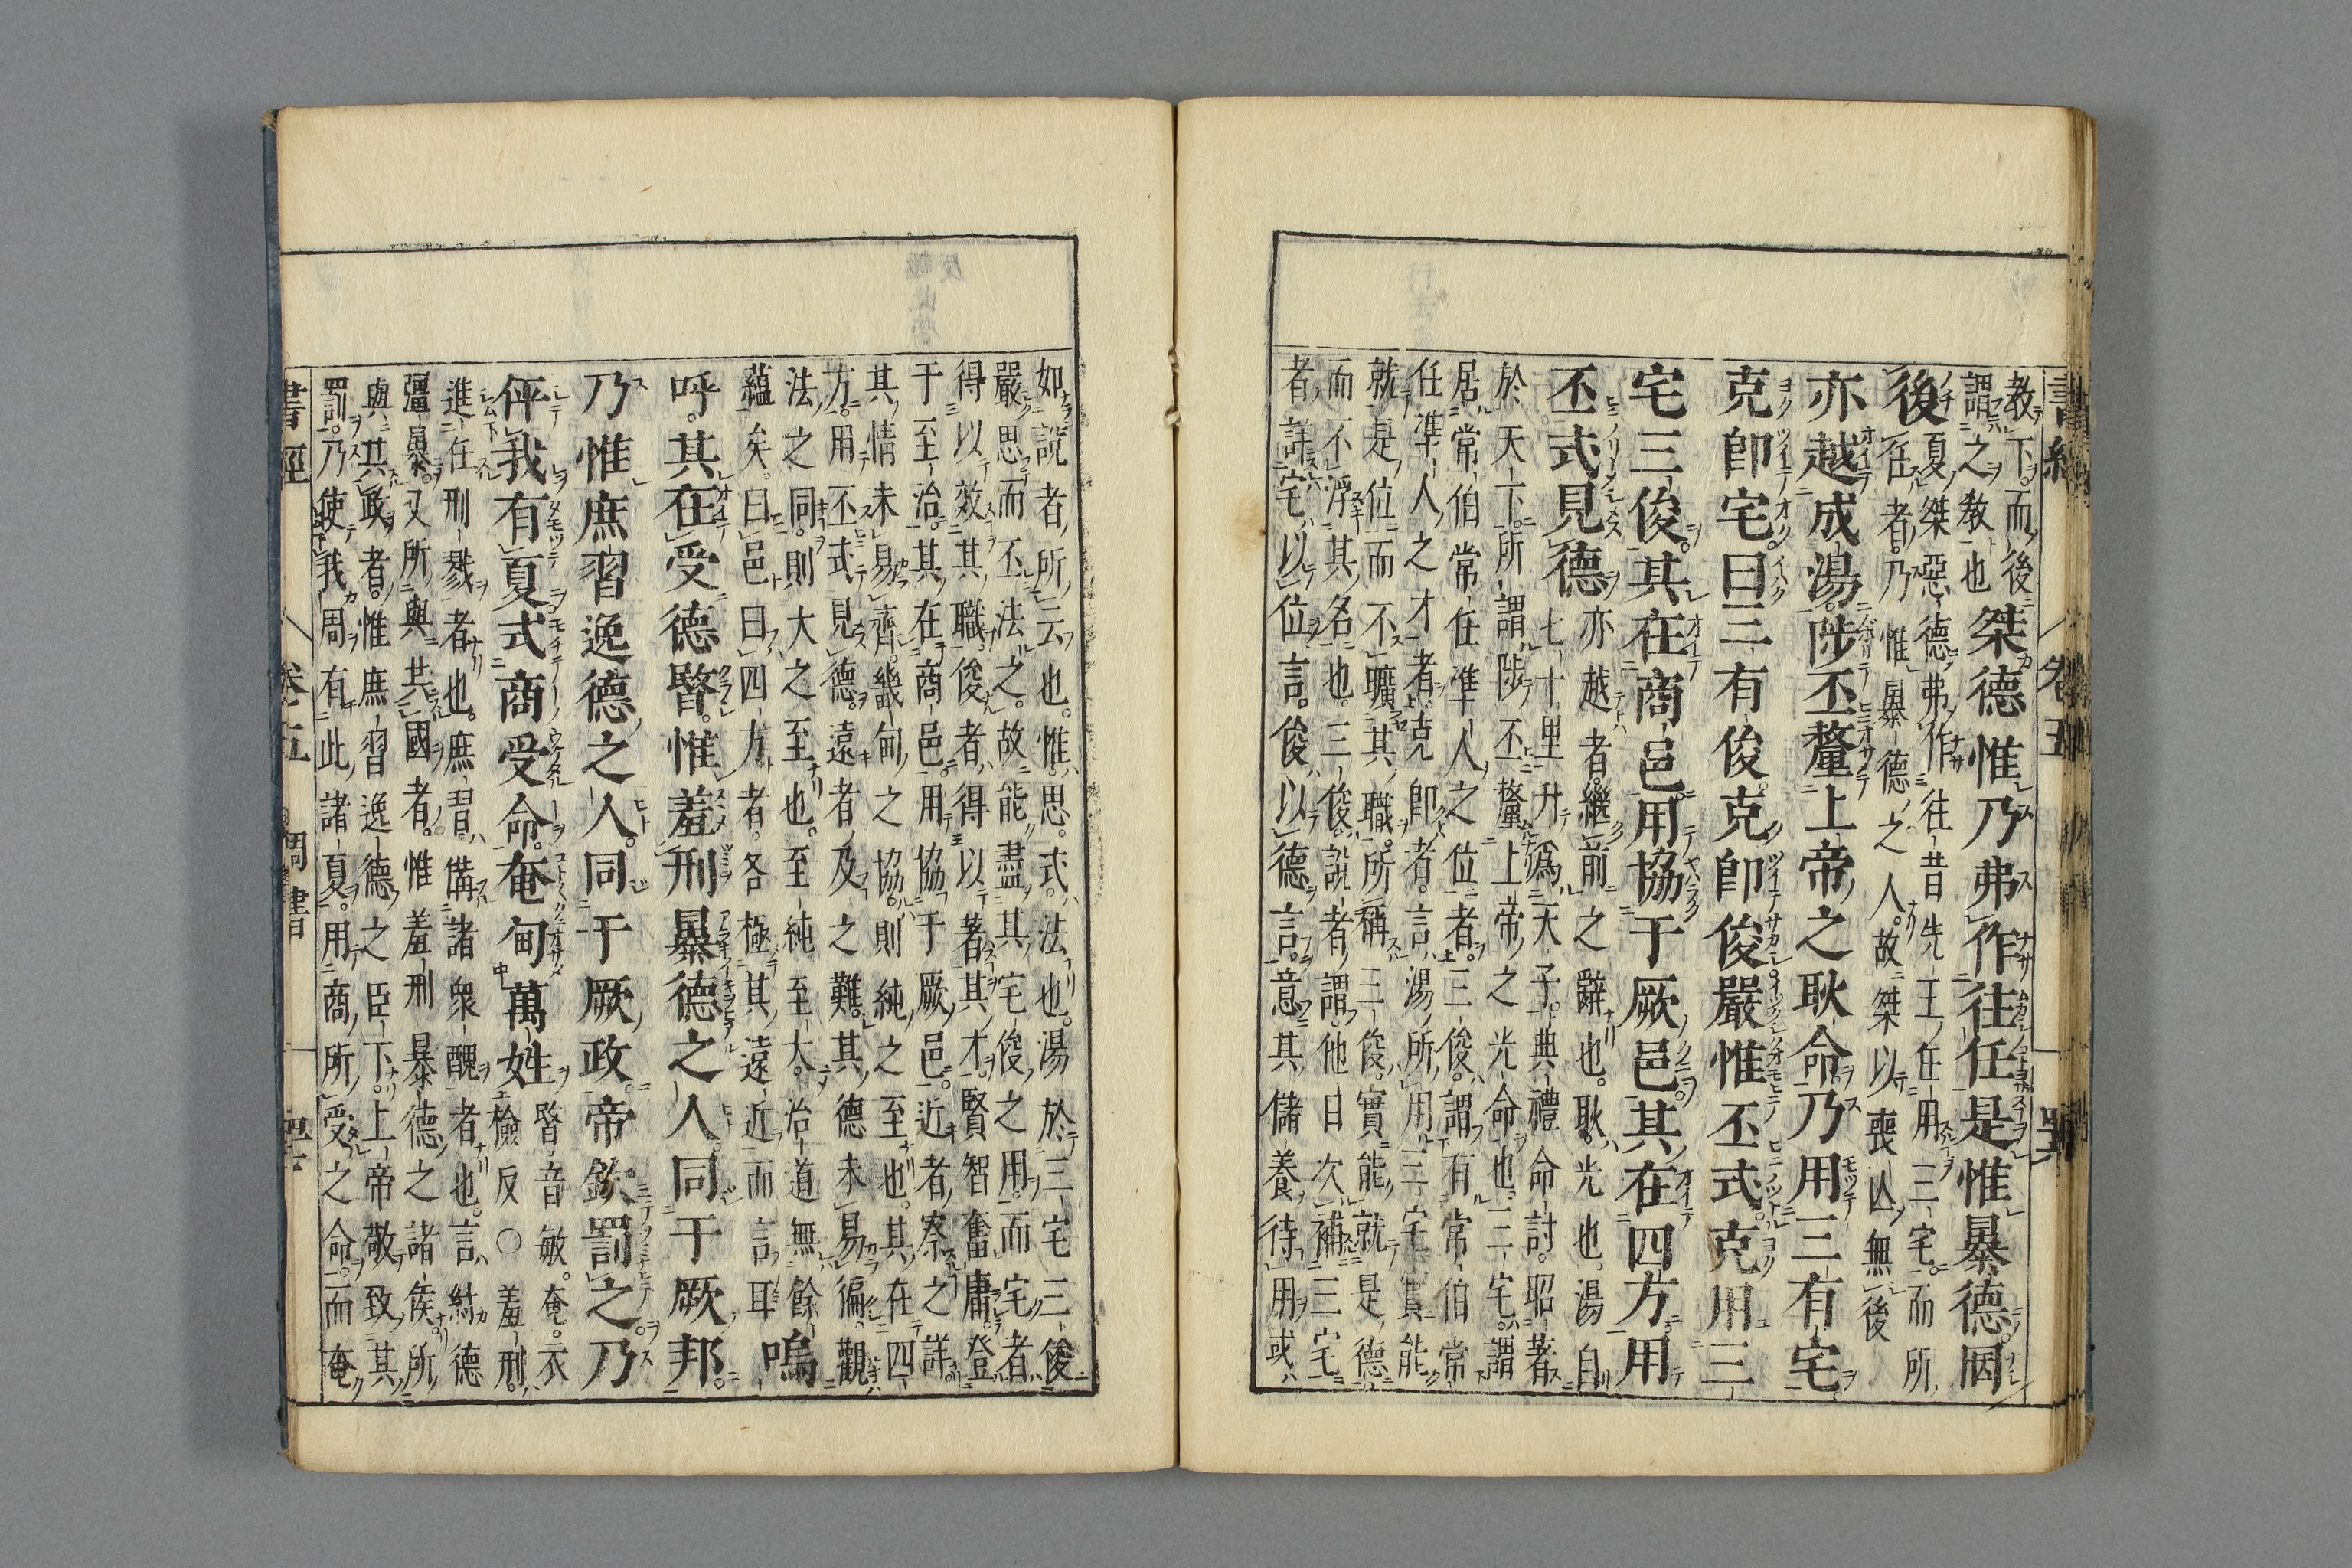 書經 卷五
教下。而後
謂之教也
桀德惟乃弗作往任是惟暴德。罔
後
夏桀惡德弗作往昔先王任用三宅。而所
任者。乃惟暴德之人。故桀以喪亡無後
亦越成湯。陟丕釐上帝之耿命。乃用三有宅。
克即宅。曰三有俊。克即俊。嚴惟丕式。克用三
宅三俊。其在商邑。用協于厥邑。其在四方。用
丕式見德
亦越者。繼前之辭也。耿。光也。湯自
七十里升爲天子。典禮命討。昭著
於天下。所謂陟丕釐上帝之光命也。三宅。謂
居常伯常任準人之位者。三俊。謂有常伯常
任準人之才者。克即者。言湯所用三宅實能
就是位而不曠其職。所稱三俊。實能就是德
而不浮其名也。三俊。說者謂他日次補三宅
者。詳宅以位言。俊以德言。意其儲養待用。或
如說者所云也。惟。思。式。法也。湯於三宅三俊
嚴思而丕法之。故能盡其宅俊之用。而宅者
得以效其職。俊者得以著其才。賢智奮庸。登
于至治。其在商邑。用協于厥邑。近者察之詳
其情未易齊。畿甸之協。則純之至也。其在四
方。用丕式見德。遠者及之難。其德未易徧。觀
法之同。則大之至也。至純至大。治道無餘
蘊矣。曰邑曰四方者。各極其遠近而言耳
嗚
呼。其在受德暋。惟羞刑暴德之人。同于厥邦。
乃惟庶習逸德之人。同于厥政。帝欽罰之。乃
伻我有夏式商受命。奄甸萬姓
暋音敏。奄。衣
檢反○羞刑。
進任刑戮者也。庶習。備諸衆醜者也。言紂德
彊暴。又所與共國者。惟羞刑暴德之諸侯。所
與共政者。惟庶習逸德之臣下。上帝敬致其
罰。乃使我周有此諸夏。用商所受之命。而奄
書經 卷五 周書